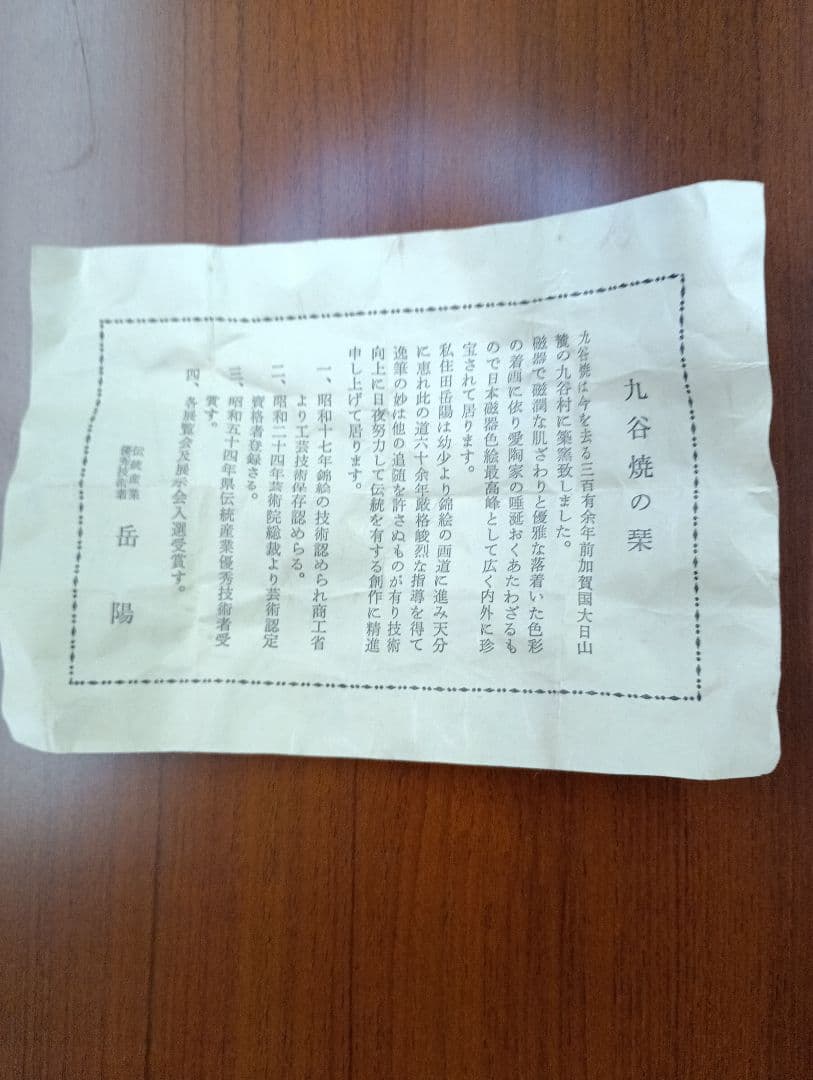 九谷焼の栞
九谷焼は今を去る三百有余年前加賀国大日山
麓の九谷村に築窯致しました。
磁器で磁潤な肌ざわりと優雅な落着いた色彩
の着画に依り愛陶家の唾涎おくあたわざるも
ので日本磁器色絵最高峰として広く内外に珍
宝されて居ります。
私住田岳陽は幼少より錦絵の画道に進み天分
に恵れ此の道六十余年厳格峻烈な指導を得て
逸筆の妙は他の追随を許さぬものが有り技術
向上に日夜努力して伝統を有する創作に精進
申し上げて居ります。
一、昭和十七年錦絵の技術認められ商工省
より工芸技術保存認めらる。
二、昭和二十四年芸術院総裁より芸術認定
資格者登録さる。
三、昭和五十四年県伝統産業優秀技術者受
賞す。
四、各展覧会及展示会入選受賞す。
伝統産業
優秀技術者
岳陽